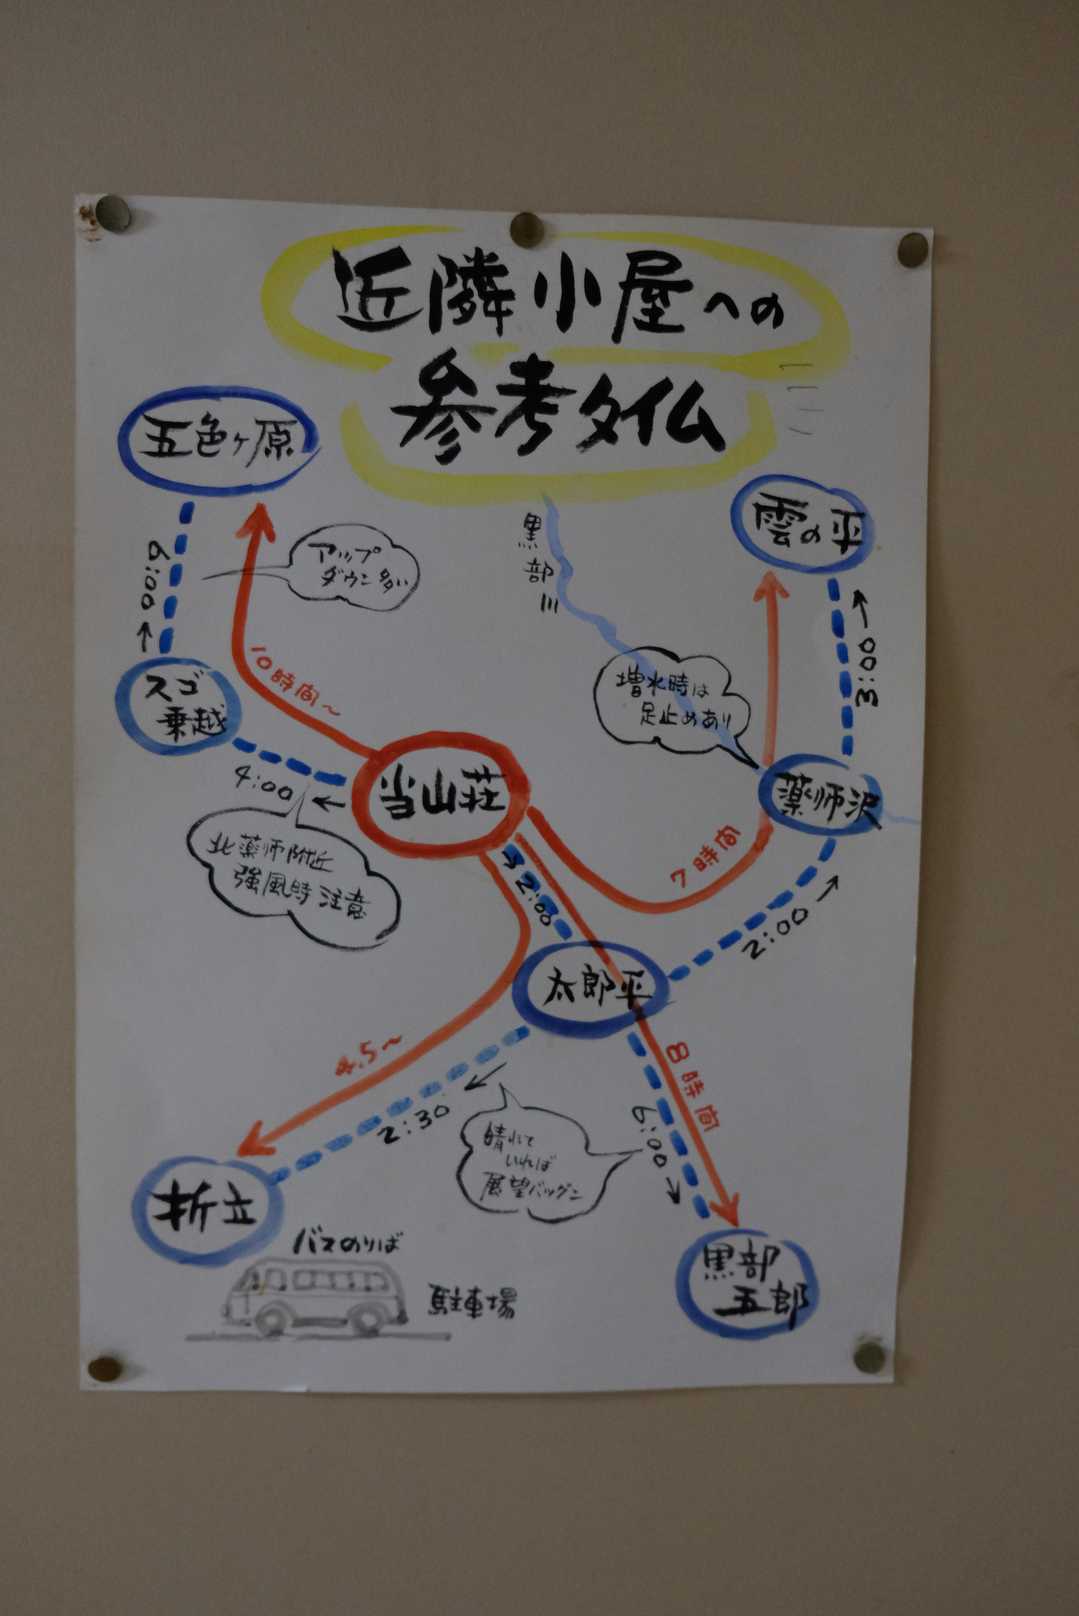 近隣小屋への
参考タイム
五色ヶ原
雲の平
黒部川
アップ
ダウン多い
6:00
3:00
スゴ
乗越
10時間〜
増水時は
足止めあり
当山荘
薬師沢
4:00
7時間
北薬師附近
強風時注意
2:00
2:00
太郎平
4.5〜
8時間
2:30
6:00
晴れて
いれば
展望バツグン
折立
バスのりば
駐車場
黒部
五郎